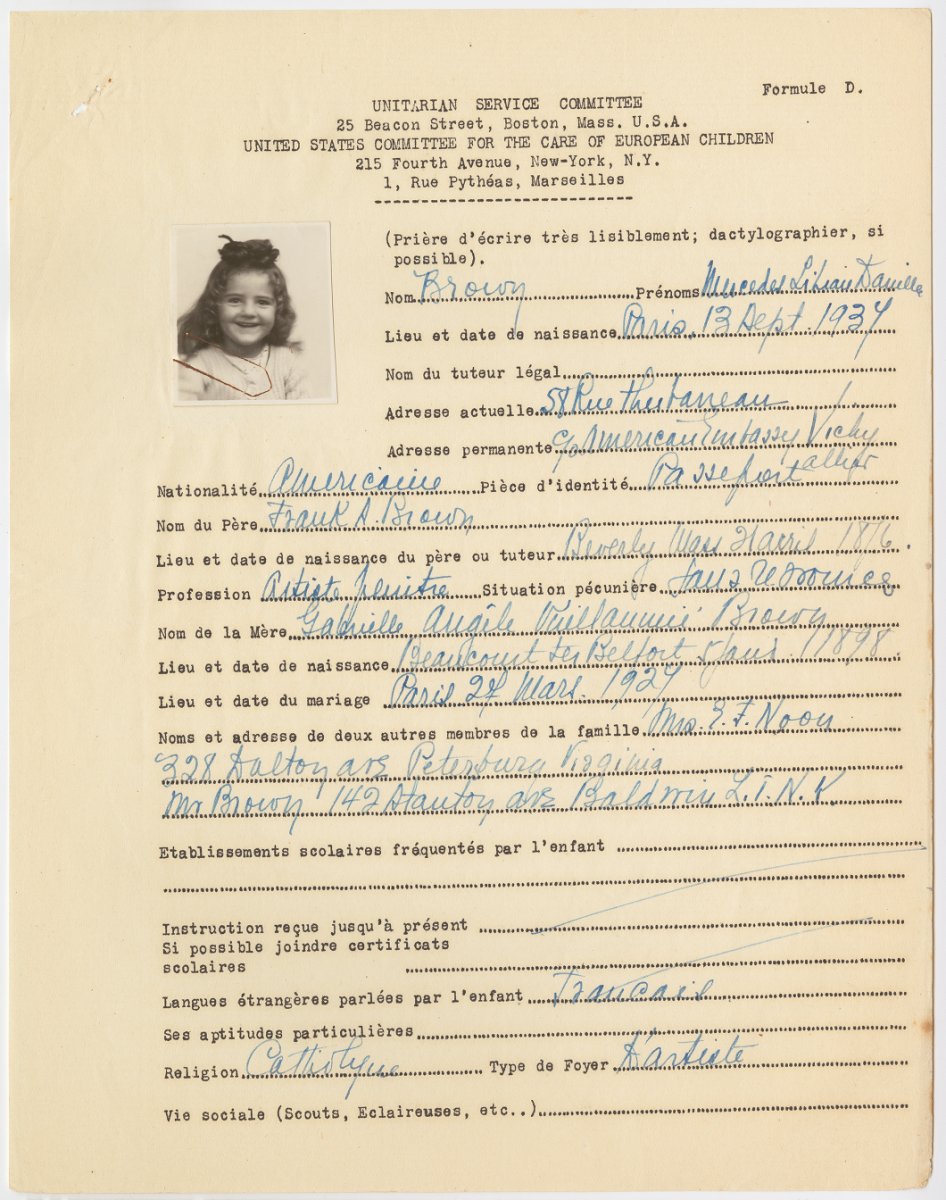 Formule D.
UNITARIAN SERVICE COMMITTEE
25 Beacon Street, Boston, Mass. U.S.A.
UNITED STATES COMMITTEE FOR THE CARE OF EUROPEAN CHILDREN
215 Fourth Avenue, New-York, N.Y.
1, Rue Pythéas, Marseilles
(Prière d'écrire très lisiblement; dactylographier, si
possible).
Nom Brown Prénoms Mercedes Lilian Danielle
Lieu et date de naissance Paris, 13 Sept. 1937
Nom du tuteur légal
Adresse actuelle 58 Rue
Adresse permanente c/o American Embassy Vichy
Allier
Nationalité Americaine Pièce d'identité Passeport
Nom du Père Frank A. Brown
Lieu et date de naissance du père ou tuteur Beverly Mass 1876.
Profession Artiste peintre Situation pécunière sans
Nom de la Mère Gabrielle Angèle Brown
Lieu et date de naissance Beaucourt Ter Belfort 5 Janv. 1898.
Lieu et date du mariage Paris 27 Mars. 1927
Noms et adresse de deux autres membres de la famille Mrs. E. F. Noon
328 Dalton ave Petersburg Virginia
Mr Brown 142 Stanton ave Baldwin L.I.N.Y.
Etablissements scolaires fréquentés par l'enfant
Instruction reçue jusqu'à présent
Si possible joindre certificats
scolaires
Langues étrangères parlées par l'enfant Francais
Ses aptitudes particulières
Religion Catholique Type de Foyer D'artiste
Vie sociale (Scouts, Eclaireuses, etc..)